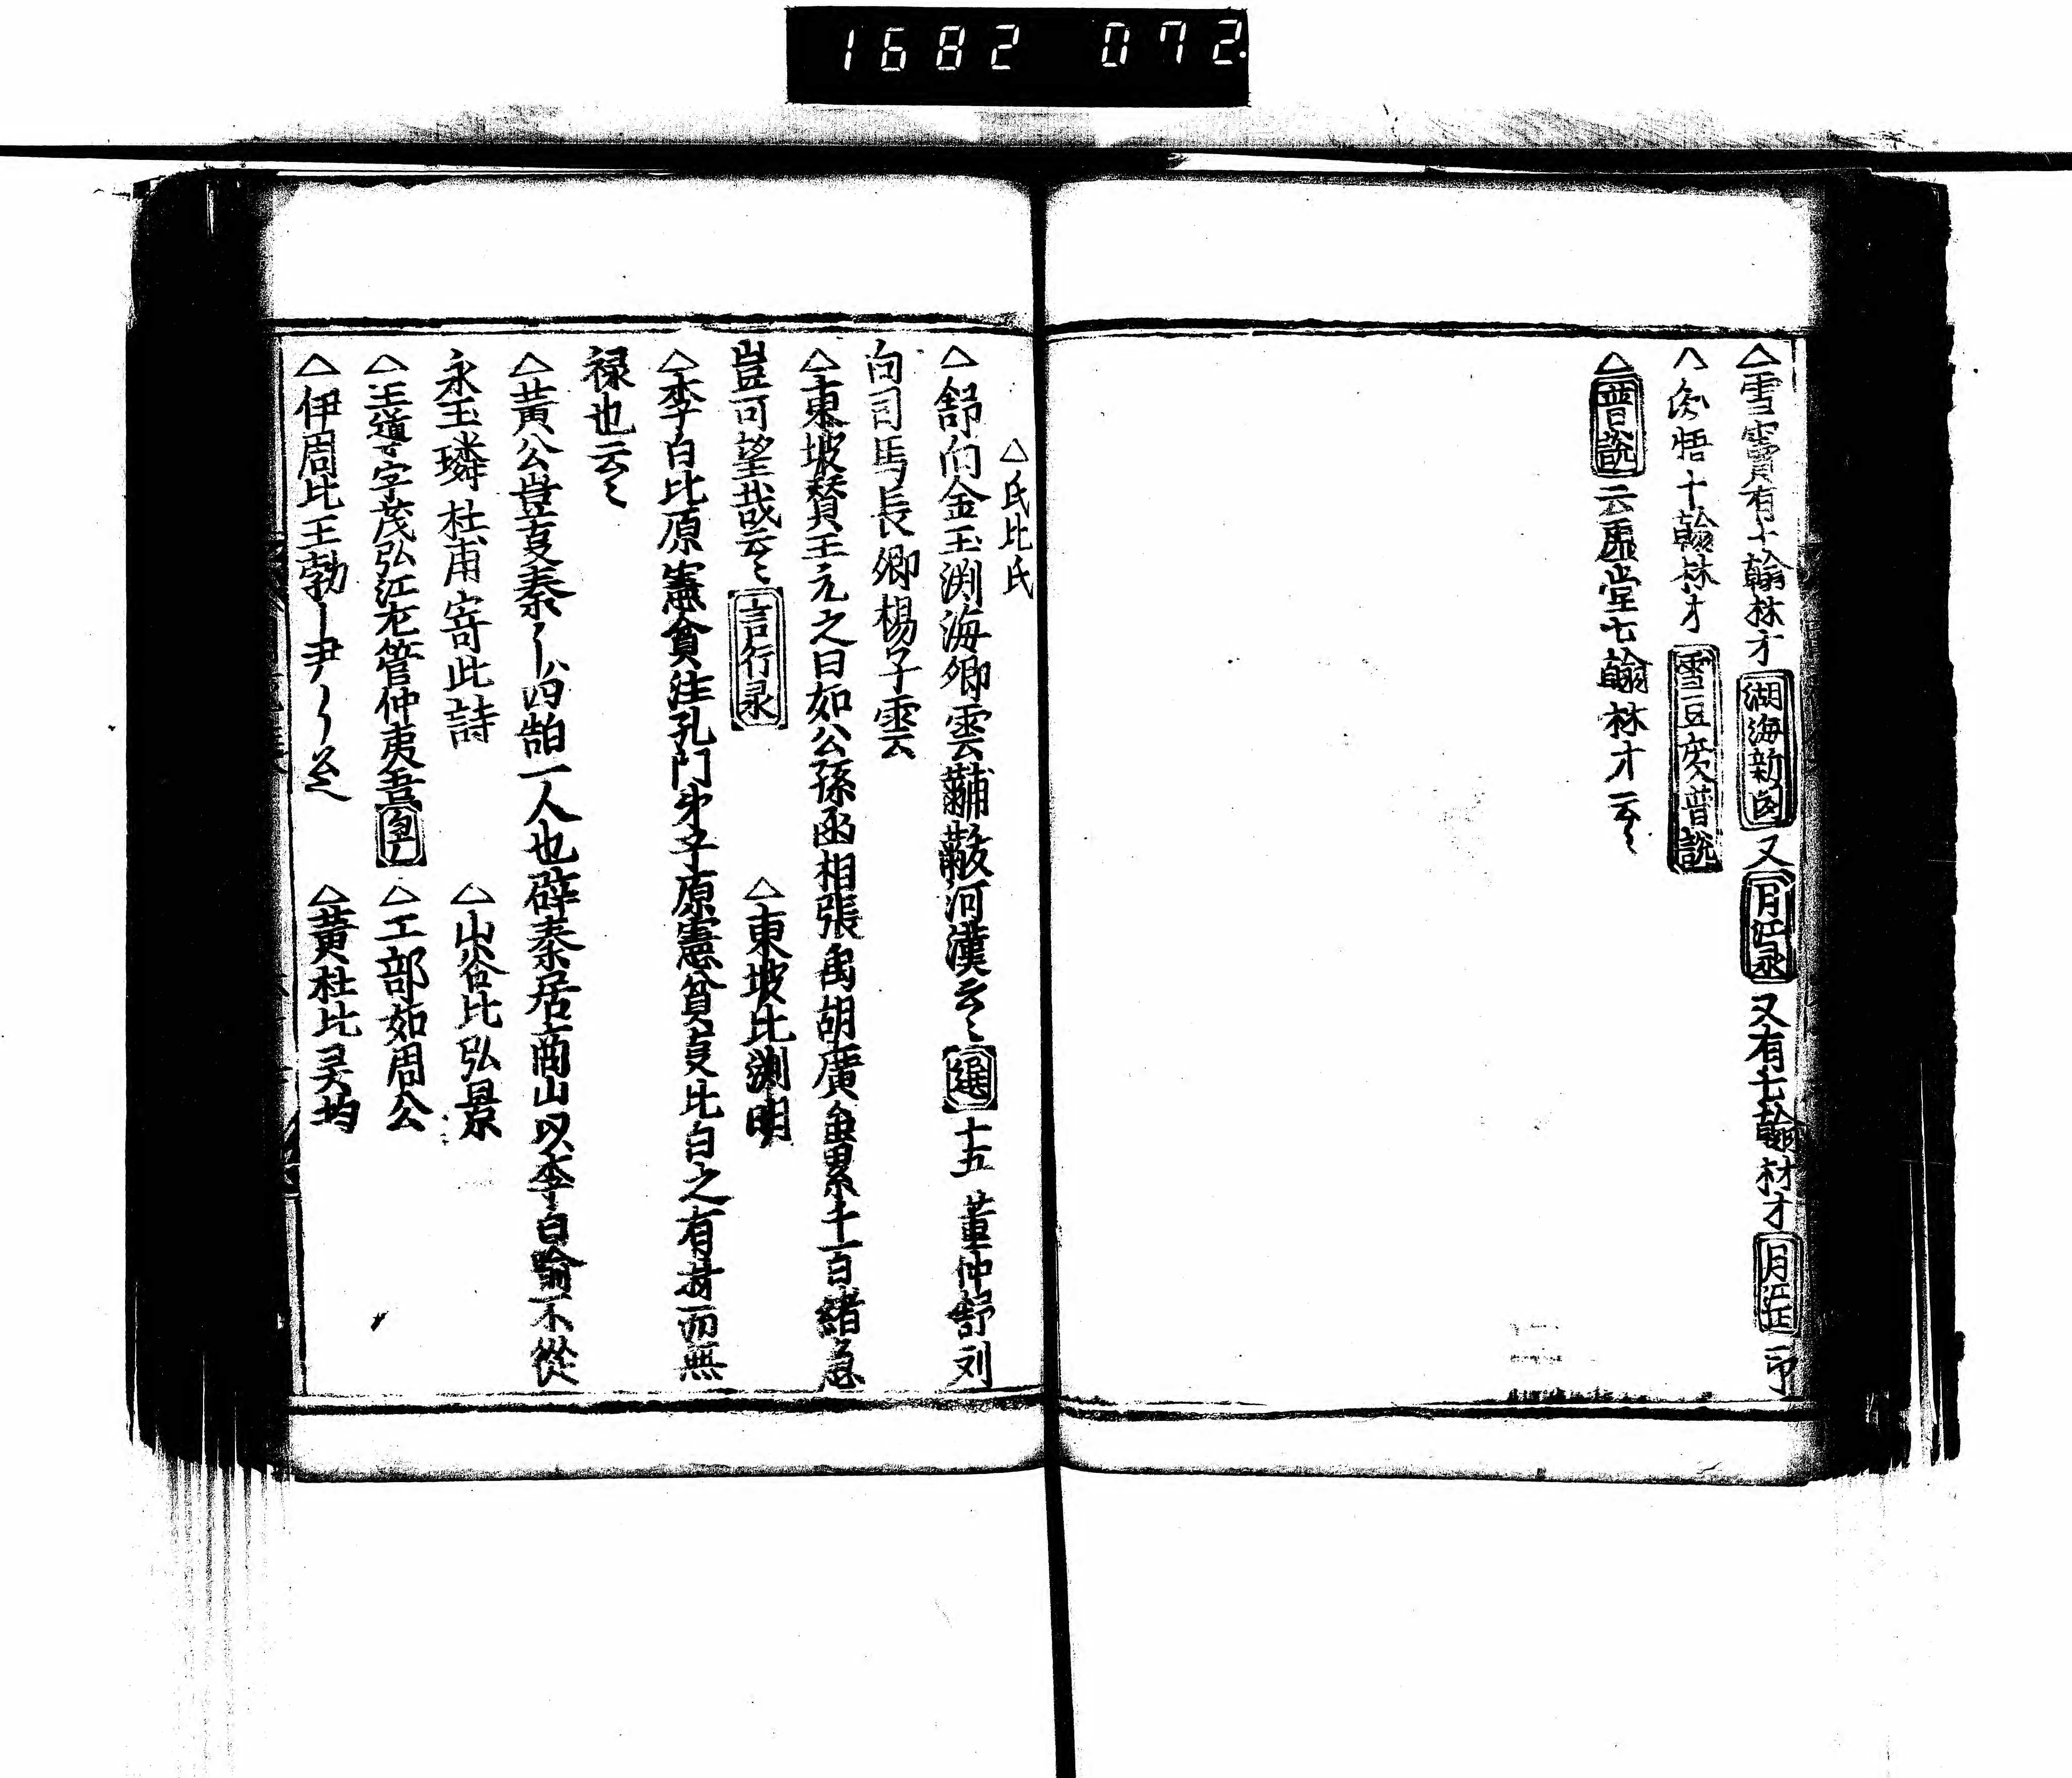 1682 072
△雪竇有十翰林才 湖海新 又 月江录 又有七翰林才 月江 一巾
悟十翰林才 雪豆 普説
△普説 云 堂七翰林才云〻
△氏比氏
△舒向金玉渕海卿雲黼黻河漢云〻 選 十五 董仲舒刘
向司馬長卿楊子雲
△東坡賛王元之曰如公孫 相張禹胡廣 累千百緒急
豈可望哉云〻 言行录 △東坡比渕明
△李白比原憲貧注孔門弟子原憲貧 比白之有 而無
禄也云〻
△黄公豈 秦 四皓一人也辟秦居商山以李白喻不從
永王璘杜甫寄此詩 △山谷比弘景
△王導字茂弘江左管仲夷吾 △工部如周公
△伊周比王勃 尹 △黄杜比吴均